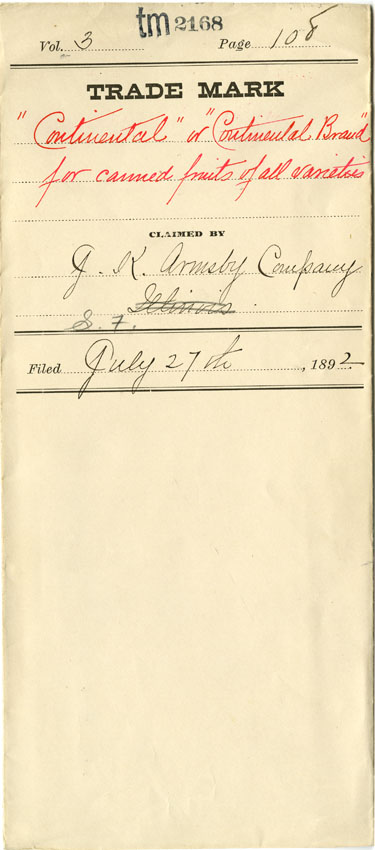 tm 2168
Vol. 3 Page 108
TRADE MARK
"Continental" or "Continental Brand"
for canned fruits of all varieties
CLAIMED BY
J. K. Armsby Company
Illinois
S. F.
Filed July 27th, 1892.